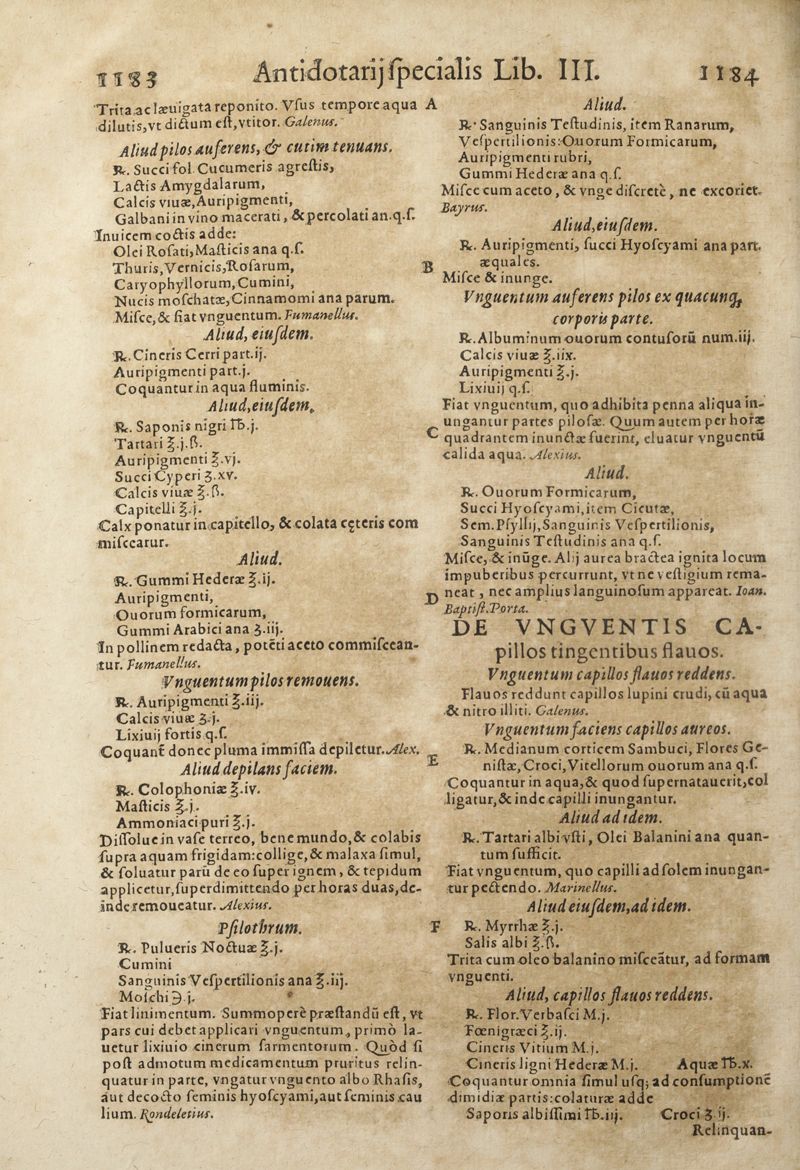 1183
Antidotarij specialis Lib. III.
1184
Trita ac læuigata reponito. Vsus tempore aqua
dilutis, vt dictum est, vtitor. Galenus.
Aliud pilos auferens, & cutim tenuans.
℞. Succi fol. Cucumeris agrestis,
Lactis Amygdalarum,
Calcis viuæ, Auripigmenti,
Galbani in vino macerati, & percolati an. q.ſ.
Inuicem coctis adde:
Olei Rosati, Masticis ana q.ſ.
Thuris, Vernicis, Rosarum,
Caryophyllorum, Cumini,
Nucis moschatæ, Cinnamomi ana parum.
Misce, & fiat vnguentum. Fumanellus.
Aliud, eiusdem.
℞. Cineris Cerri part. ij.
Auripigmenti part. j.
Coquantur in aqua fluminis.
Aliud, eiusdem.
℞. Saponis nigri ℔.j.
Tartari ℥.j.ß.
Auripigmenti ℥.vj.
Succi Cyperi ʒ.xv.
Calcis viuæ ℥.ß.
Capitelli ℥.j.
Calx ponatur in capitello, & colata cęteris com
misceatur.
Aliud.
℞. Gummi Hederæ ℥.ij.
Auripigmenti,
Ouorum formicarum,
Gummi Arabici ana ʒ.iij.
In pollinem redacta, potēti aceto commiscean-
tur. Fumanellus.
Vnguentum pilos remouens.
℞. Auripigmenti ℥.iij.
Calcis viuæ ʒ.j.
Lixiuij fortis q.ſ.
Coquant donec pluma immissa depiletur. Alex.
Aliud depilans faciem.
℞. Colophoniæ ℥.iv.
Masticis ℥.j.
Ammoniaci puri ℥.j.
Dissolue in vase terreo, bene mundo, & colabis
supra aquam frigidam: collige, & malaxa simul,
& soluatur parū de eo super ignem, & tepidum
applicetur, superdimittendo per horas duas, de-
inde remoueatur. Alexius.
Psilothrum.
℞. Pulueris Noctuæ ℥.j.
Cumini
Sanguinis Vespertilionis ana ℥.iij.
Moschi ℈.j.
Fiat linimentum. Summopere præstandū est, vt
pars cui debet applicari vnguentum, primò la-
uetur lixiuio cinerum sarmentorum. Quòd si
post admotum medicamentum pruritus relin-
quatur in parte, vngatur vnguento albo Rhasis,
aut decocto seminis hyoscyami, aut seminis cau
lium. Rondeletius.
A
Aliud.
℞. Sanguinis Testudinis, item Ranarum,
Vespertilionis: Ouorum Formicarum,
Auripigmenti rubri,
Gummi Hederæ ana q.ſ.
Misce cum aceto, & vnge discretè, ne excoriet.
Bayrus.
Aliud, eiusdem.
℞. Auripigmenti, succi Hyoscyami ana part.
B
æquales.
Misce & inunge.
Vnguentum auferens pilos ex quacunq;
corporis parte.
℞. Albuminum ouorum contusorū num. iij.
Calcis viuæ ℥.iix.
Auripigmenti ℥.j.
Lixiuij q.ſ.
Fiat vnguentum, quo adhibita penna aliqua in-
ungantur partes pilosæ. Quum autem per horæ
C
quadrantem inunctæ fuerint, eluatur vnguentū
calida aqua. Alexius.
Aliud.
℞. Ouorum Formicarum,
Succi Hyoscyami, item Cicutæ,
Sem. Psyllij, Sanguinis Vespertilionis,
Sanguinis Testudinis ana q.ſ.
Misce, & inūge. Alij aurea bractea ignita locum
impuberibus percurrunt, vt ne vestigium rema-
D
neat, nec amplius languinosum appareat. Ioan.
Baptist. Porta.
DE VNGVENTIS CA-
pillos tingentibus flauos.
Vnguentum capillos flauos reddens.
Flauos reddunt capillos lupini crudi, cū aqua
& nitro illiti. Galenus.
Vnguentum faciens capillos aureos.
E
℞. Medianum corticem Sambuci, Flores Ge-
nistæ, Croci, Vitellorum ouorum ana q.ſ.
Coquantur in aqua, & quod supernatauerit, col
ligatur, & inde capilli inungantur.
Aliud ad idem.
℞. Tartari albi vsti, Olei Balanini ana quan-
tum sufficit.
Fiat vnguentum, quo capilli ad solem inungan-
tur pectendo. Marinellus.
Aliud eiusdem, ad idem.
F
℞. Myrrhæ ℥.j.
Salis albi ℥.ß.
Trita cum oleo balanino misceātur, ad formam
vnguenti.
Aliud, capillos flauos reddens.
℞. Flor. Verbasci M.j.
Fœnigræci ℥.ij.
Cineris Vitium M.j.
Cineris ligni Hederæ M.j. Aquæ ℔.x.
Coquantur omnia simul usq; ad consumptionē
dimidiæ partis: colaturæ adde
Saponis albissimi ℔.iij. Croci ʒ.ij.
Relinquan-